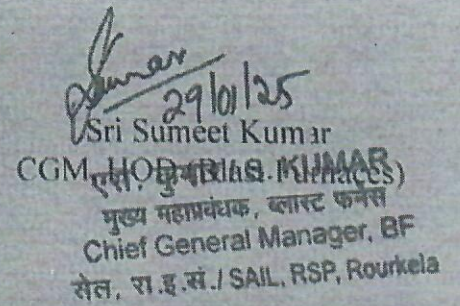 Kumar
29/01/25
Sri Sumeet Kumar
CGM, HOD (Blast Furnaces)
एस. कुमार / S. KUMAR
मुख्य महाप्रबंधक, ब्लास्ट फर्नेस
Chief General Manager, BF
सेल, रा.इ.सं./ SAIL, RSP, Rourkela